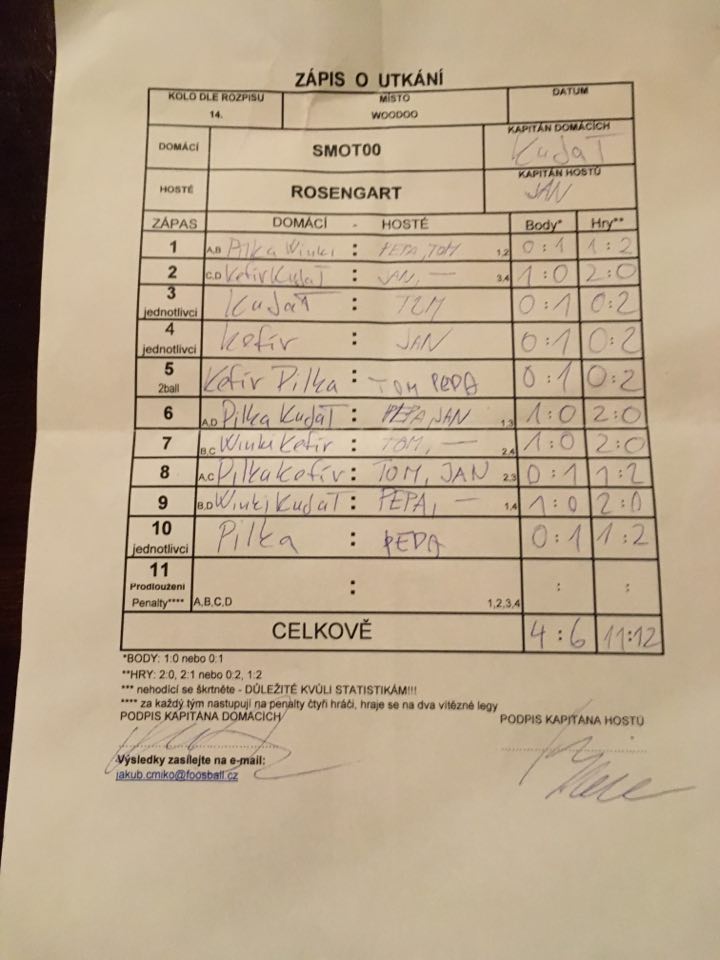 ZÁPIS O UTKÁNÍ
KOLO DLE ROZPISU MÍSTO DATUM
14. WOODOO
DOMÁCÍ SMOT00 KAPITÁN DOMÁCÍCH Kudat
HOSTÉ ROSENGART KAPITÁN HOSTŮ JAN
ZÁPAS DOMÁCÍ - HOSTÉ Body* Hry**
1 A,B Pilka Winki : PEPA, TOM 1,2 0:1 1:2
2 C,D Kefír Kudat : JAN, — 3,4 1:0 2:0
3 jednotlivci Kudat : TOM 0:1 0:2
4 jednotlivci Kefír : JAN 0:1 0:2
5 2ball Kefír Pilka : TOM PEPA 0:1 0:2
6 A,D Pilka Kudat : PEPA JAN 1,3 1:0 2:0
7 B,C Winki Kefír : TOM, — 2,4 1:0 2:0
8 A,C Pilka Kefír : TOM, JAN 2,3 0:1 1:2
9 B,D Winki Kudat : PEPA, — 1,4 1:0 2:0
10 jednotlivci Pilka : PEPA 0:1 1:2
11 Prodloužení Penalty**** A,B,C,D : 1,2,3,4 : :
CELKOVĚ 4:6 11:12
*BODY: 1:0 nebo 0:1
**HRY: 2:0, 2:1 nebo 0:2, 1:2
*** nehodící se škrtněte - DŮLEŽITÉ KVŮLI STATISTIKÁM!!!
**** za každý tým nastupují na penalty čtyři hráči, hraje se na dva vítězné legy
PODPIS KAPITÁNA DOMÁCÍCH PODPIS KAPITÁNA HOSTŮ
Výsledky zasílejte na e-mail:
jakub.cmiko@foosball.cz